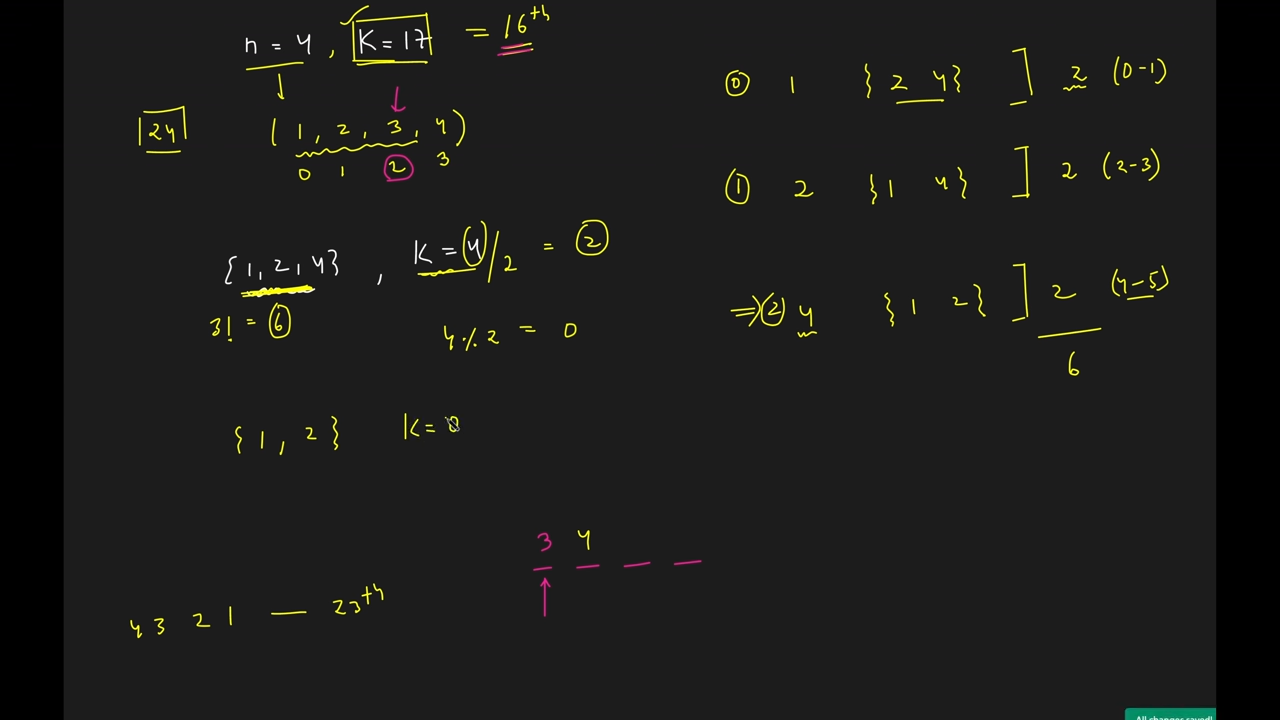 n = 4 , K = 17 = 16th
24
( 1 , 2 , 3 , 4 )
0 1 2 3
{ 1 , 2 , 4 } , K = 4 / 2 = 2
3! = 6
4 % 2 = 0
{ 1 , 2 } K = 0
3 4
4 3 2 1 — 23th
0 1 { 2 4 } ] 2 (0-1)
1 2 { 1 4 } ] 2 (2-3)
⇒ 2 4 { 1 2 } ] 2 (4-5)
6
All changes saved!